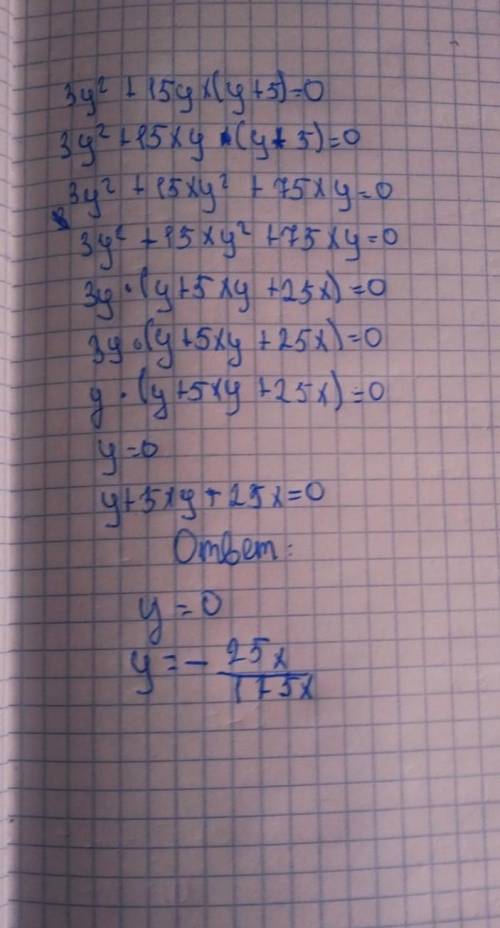 3y² + 15yx(y+5)=0
3y² + 15xy·(y+5)=0
3y² + 15xy² + 75xy=0
3y² + 15xy² + 75xy=0
3y·(y+5xy+25x)=0
3y·(y+5xy+25x)=0
y·(y+5xy+25x)=0
y=0
y+5xy+25x=0
Ответ:
y=0
y=-25x/1+5x